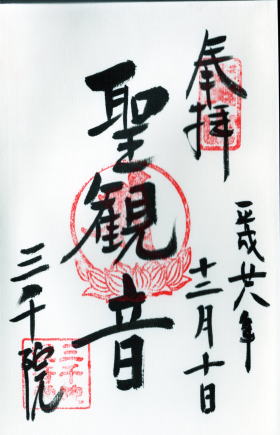 奉拝
平成廿八年
十二月十日
聖観音
三千院